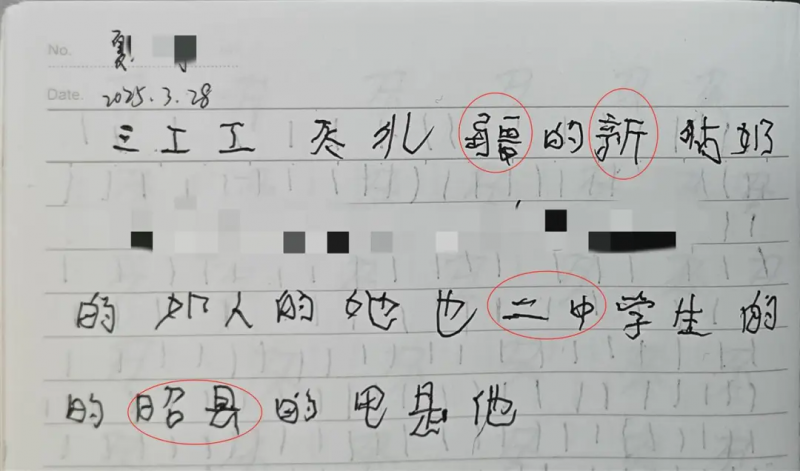 No.
Date. 2025.3.28
三工工 天礼 疆的新 奶
的 如人的她也二中学生的
的昭县的甲是他